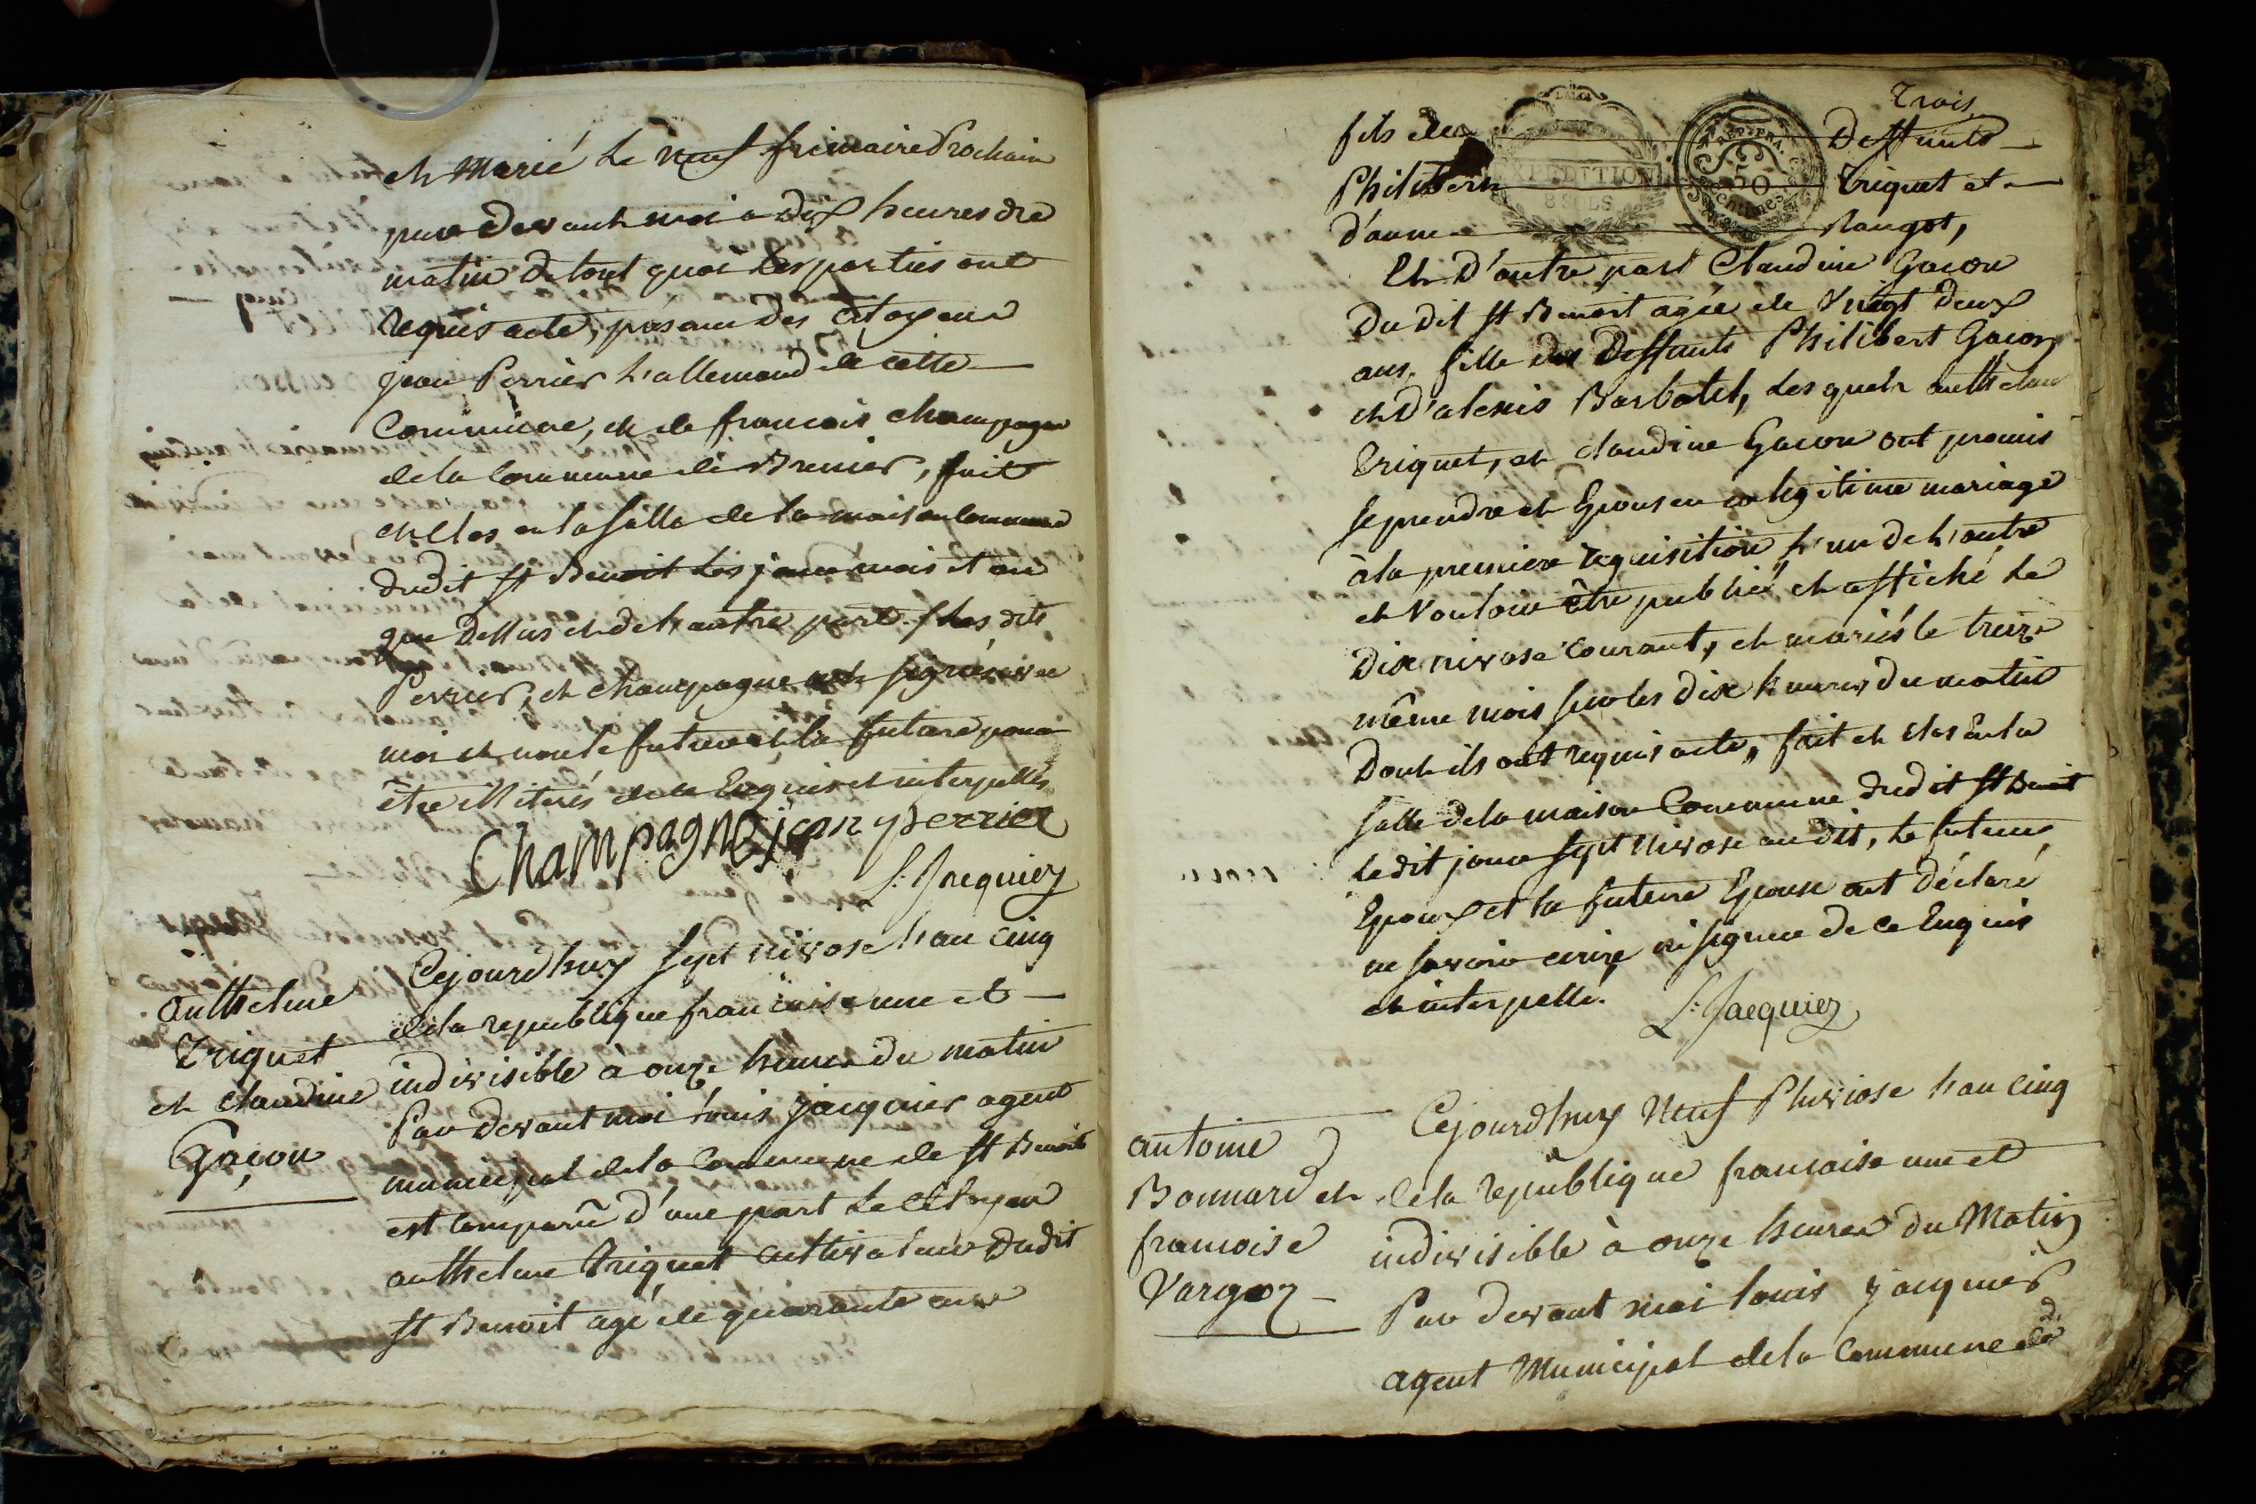 et marié le neuf frimaire Prochain
pare devant moi a dix heures du
matin de tout quoi les parties ont
requis acte, presans des citoyens
jean Perrier l'allemand de cette
Commune, et de francois champagne
de la Commune de Brenier, fait
et Clos en la salle de la maison commune
dudit St Benoit les jour mois et an
que dessus et de l'autre part. les dits
Perrier, et champagne ont signés avec
moi et non le futur et la future pour
être illiterés de ce Enquis et interpellés
Champagne jean perrier
L. Jacquier
anthelme
Triquet
et claudine
Gaçon
Cejourdhuy sept nivose l'an cinq
de la republique françoise une et
indivisible à onze heures du matin
Par devant moi louis jacquier agent
municipal de la Commune de St Benoit
est Comparû d'une part le Citoyen
anthelme Triquet cultivateur dudit
St Benoit agé de quarante ans
Trois
fils de Deffunts
Philibert Triquet et
d'anne Rangot,
EXPEDITION
8 SOLS
50
centimes
Et D'autre part Claudine Gacon
Du dit St Benoit agée de Vingt deux
ans. fille des Deffunts Philibert Gacon
et D'alexis Barbotet, lesquels anthelme
Triquet, et claudine Gacon ont promis
se prendre et Epouser en legitime mariage
à la premiere requisition l'un de l'autre
et vouloir être publié et affiché le
Dix nivose courant, et mariés le treize
même mois sur les dix heures du matin
Dont ils ont requis acte, fait et clos En la
salle de la maison Commune dudit St Benoit
le dit jour sept Nivose an dit, le futur
Epoux et la future Epouse ont déclaré
ne savoir ecrire ni signer de ce Enquis
et interpellé.
L. Jacquier
antoine
Bonnard et
francoise
Vargoz
Cejourdhuy Neuf Pluviose l'an cinq
de la republique francaise une et
indivisible à onze heures du Matin
Par devant moi louis jacquier
agent Municipal de la Commune de